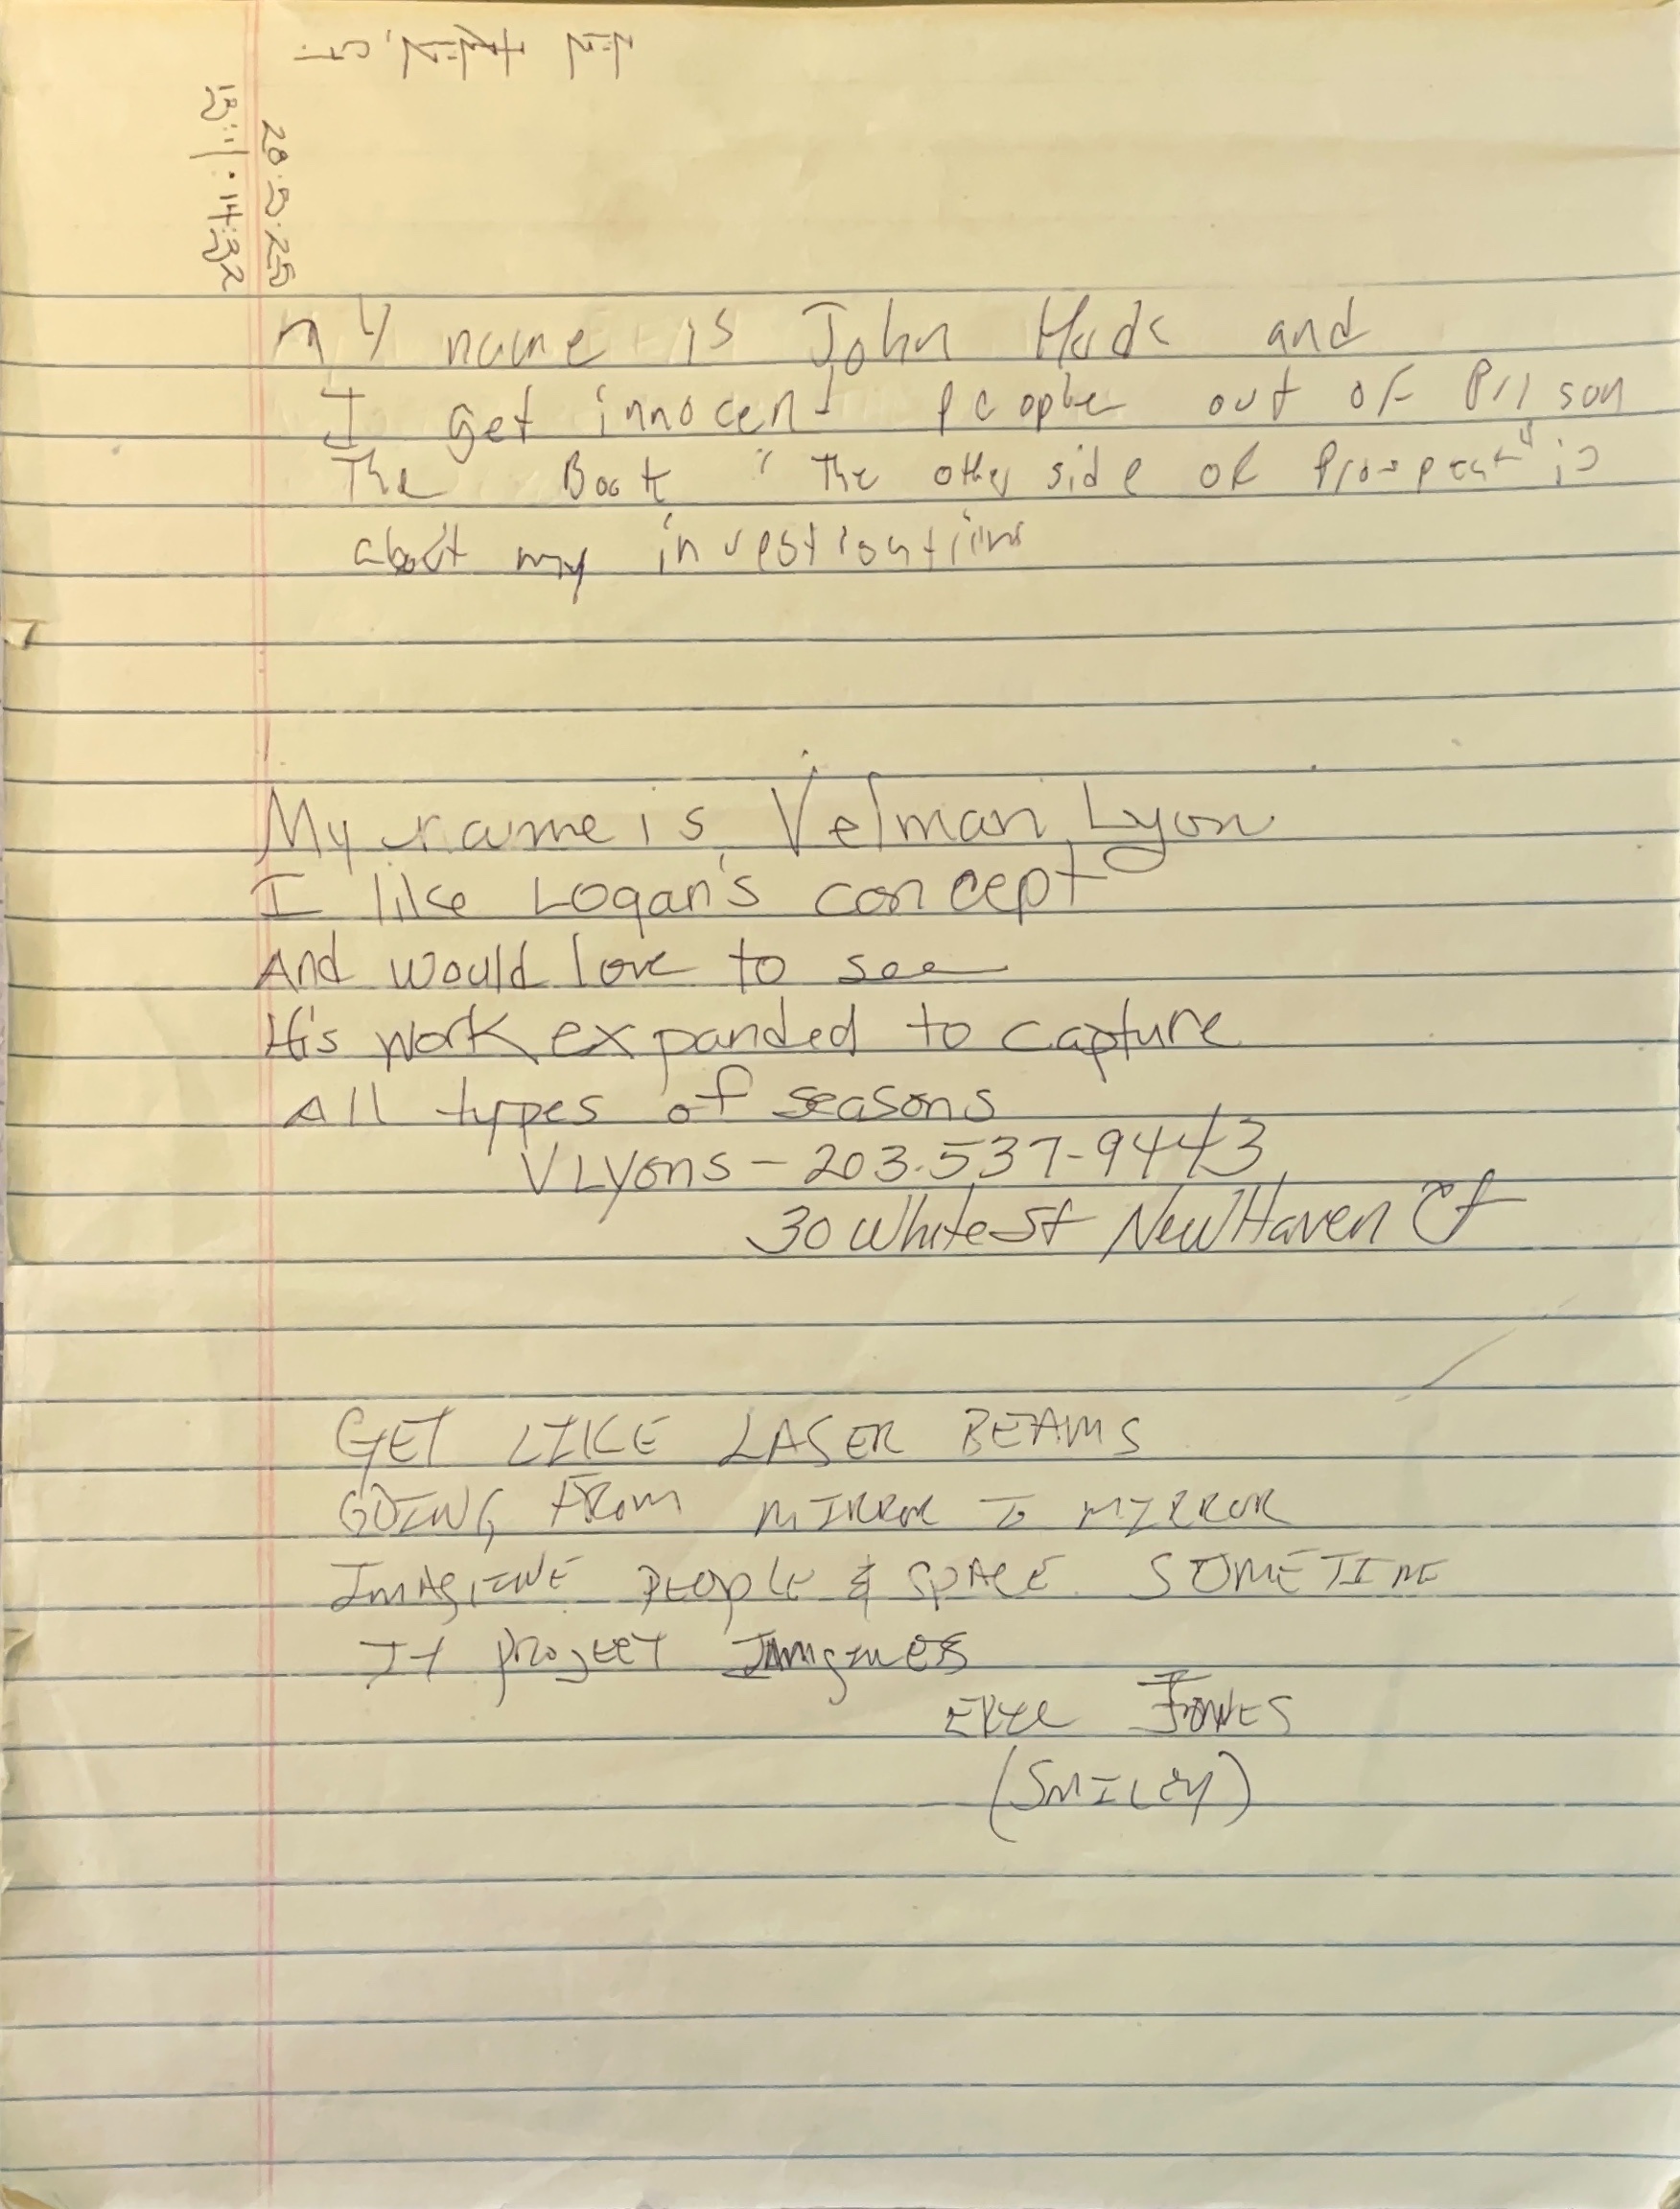 20.5.25
14:32
my name is John Hude and
I get innocent people out of Prison
The Book "The other side of Prospect" is
about my investigations
My name is Velman Lyon
I like Logan's concept
And would love to see
His work expanded to capture
All types of seasons
VLyons - 203.537-9443
30 White St New Haven Ct
GET LIKE LASER BEAMS
GOING FROM MIRROR TO MIRROR
IMAGINE PEOPLE & SPACE SOMETIME
It PROJECT
JONES
(SMILEY)